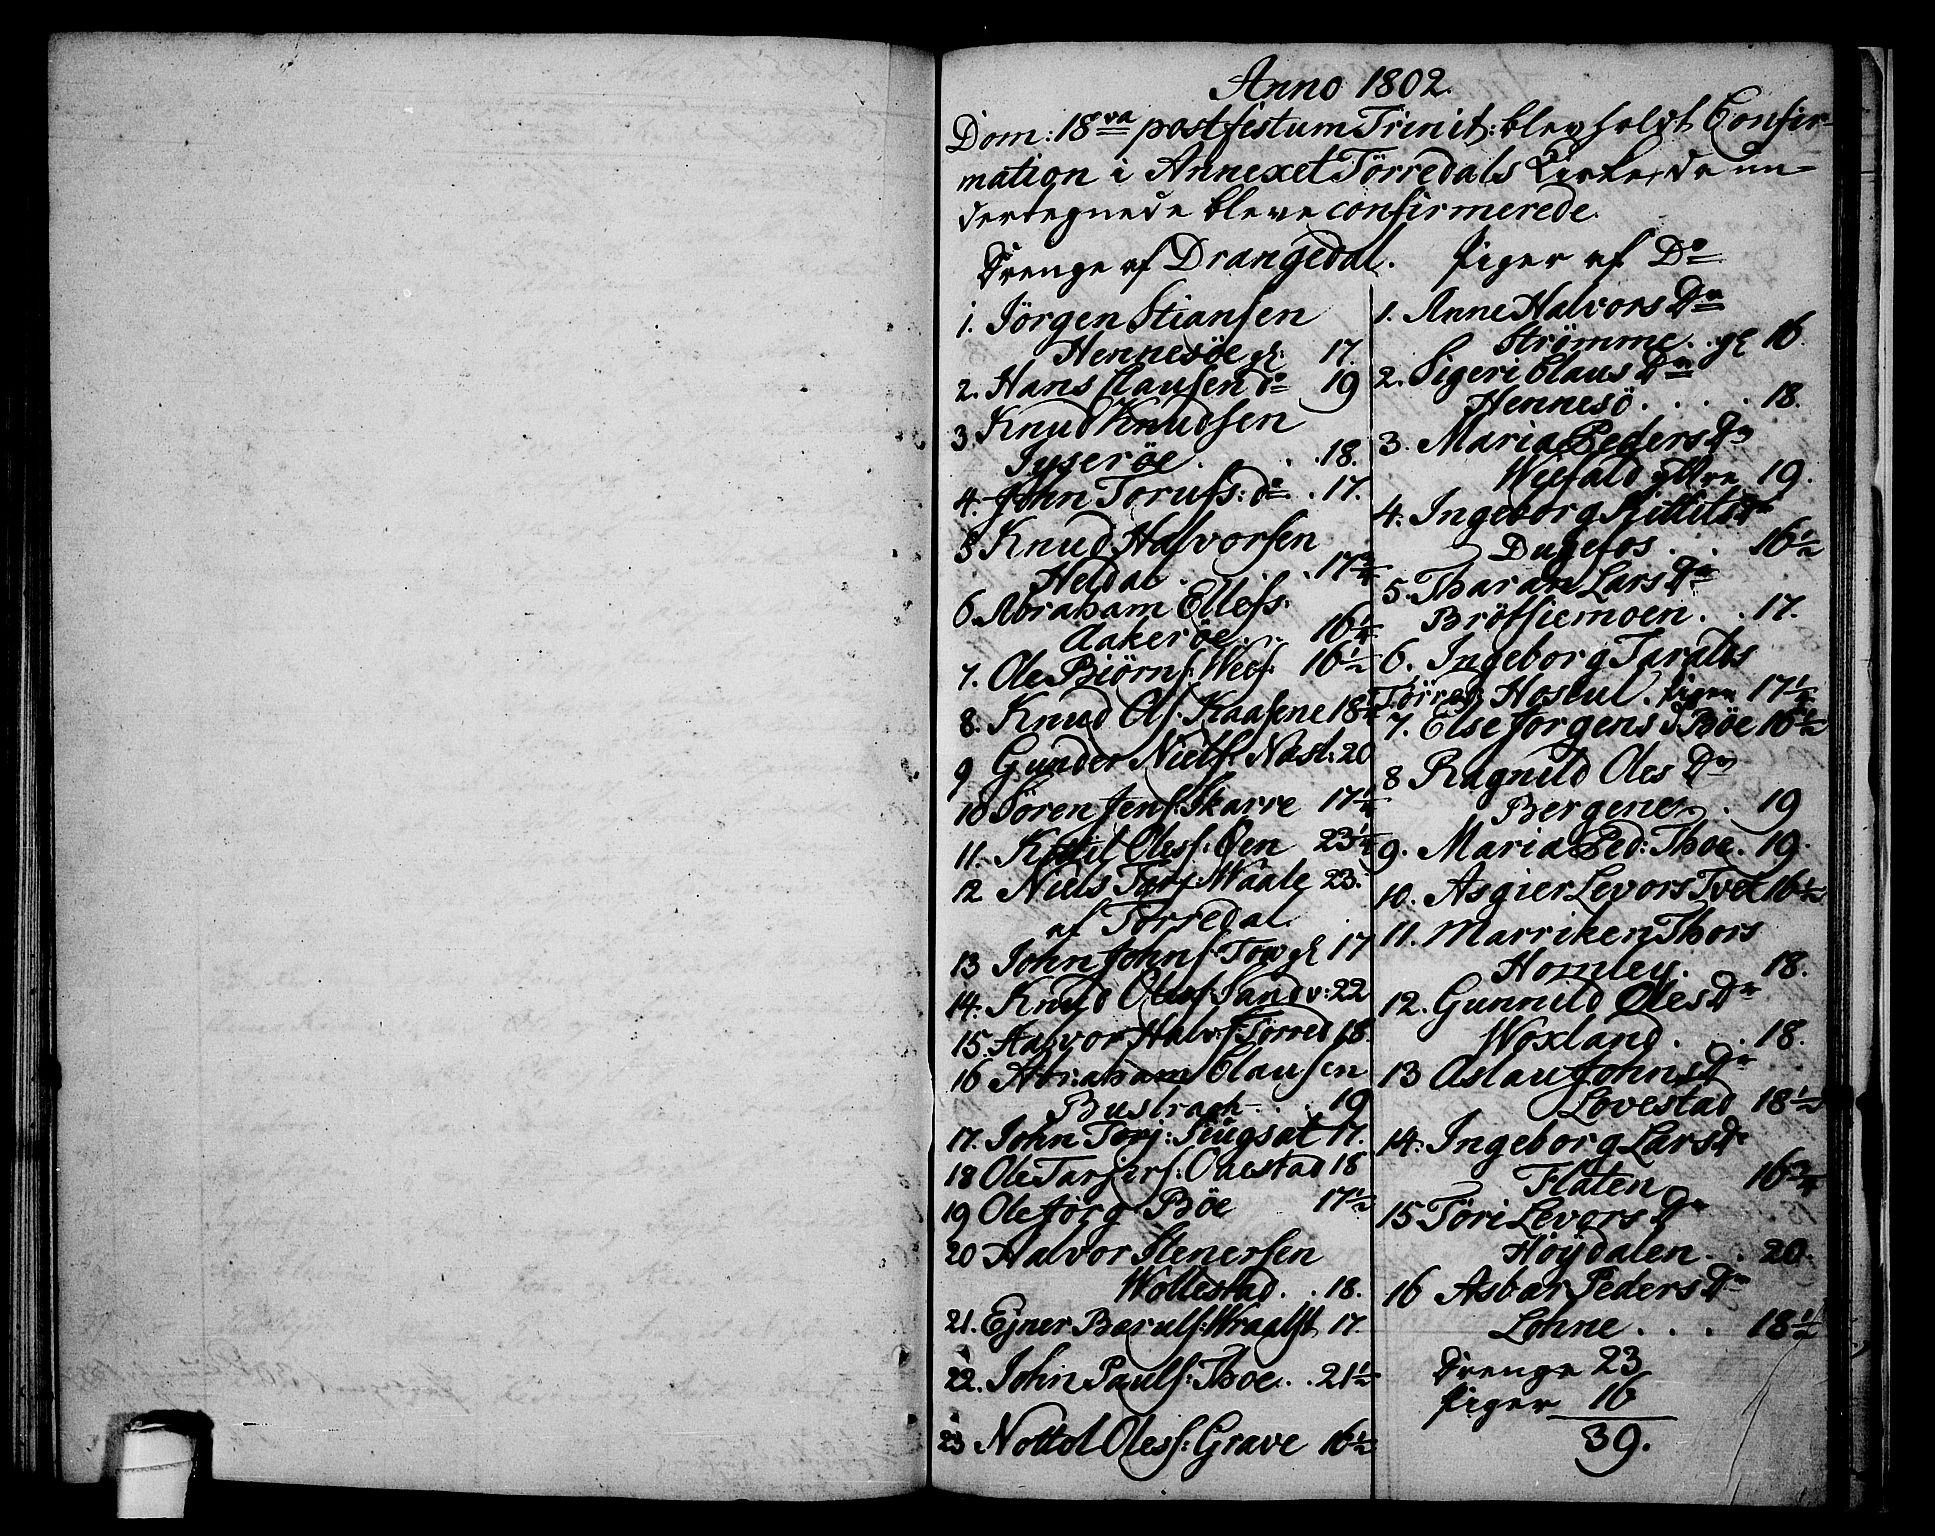 Anno 1802.
Dom: 18va post festum Trinit: blev holdt Confir-
mation i Annexet Törredals Kirke, da un-
dertegnede bleve confirmerede.
Drenge af Drangedal.
1. Jörgen Stiansen
Hennesöe gl: 17.
2. Hans Clausen do 19
3 Knud Knudsen
18.
4. John Torufs: do . 17.
5 Knud Halvorsen
Heldal . . 17 3/4
6. Abraham Ellefs:
Aakeröe . . 16 1/4
7. Ole Biörns: Wees: 16 1/2
8. Knud Ols: Kaasene 18 1/4
9 Gunder Niels: Nasl: 20
10 Sören Jens: Skarre 17 1/4
11. Kittil Oless: Öen 23 1/4
12 Niels Tarj: Waale 23.
af Törredal
13 John Johns: Tow gl 17
14. Knud Oless: Sandv: 22
15. Halvor Halv: Törred 18.
16 Abraham Clausen
Bustrack . . 19
17. John Torj: 17.
18 Ole Tarjers: 18
19 Ole Jörg: Böe 17 1/2
20 Halvor Stenersen
Wollestad . . 18.
21. Ejner Beruls: Wraalst 17.
22. John Pauls: Thoe . . 21 1/2
23 Nottol Oless: Grave 16 1/2
Piger af Do
1. Anne Halvors Dr
Strömme . . gl 16.
2. Sigeri Claus Dr
Hennesö . . . . 18.
3. Maria Peders Dr
Weefald yttre 19.
4. Ingeborg Kittils Dr
Dugefos . . 16 1/2
5. Tharan Lars Dr
Brödsiemoen . . 17.
6. Ingeborg Taralds
Törred: Hoseul. Pigen 17 1/4
7. Else Jörgens D Böe 16 1/2
8 Ragnild Oles Dr
Bergene . 19
9. Maria Ped: Thoe . 19.
10. Asgier Levors Tvet 16 1/2
11. Marriken Thors
Homley. 18.
12. Gunnild Oles Dr
Woxland . . . 18.
13 Aslau Johns Dr
Lovestad 18 1/2
14. Ingeborg Lars Dr
Flaten 16 3/4
15 Töri Levors Dr
Höydalen . . 20.
16 Asbar Peders Dr
Lohne . . . 18 1/2
Drenge 23
Piger 16
39.